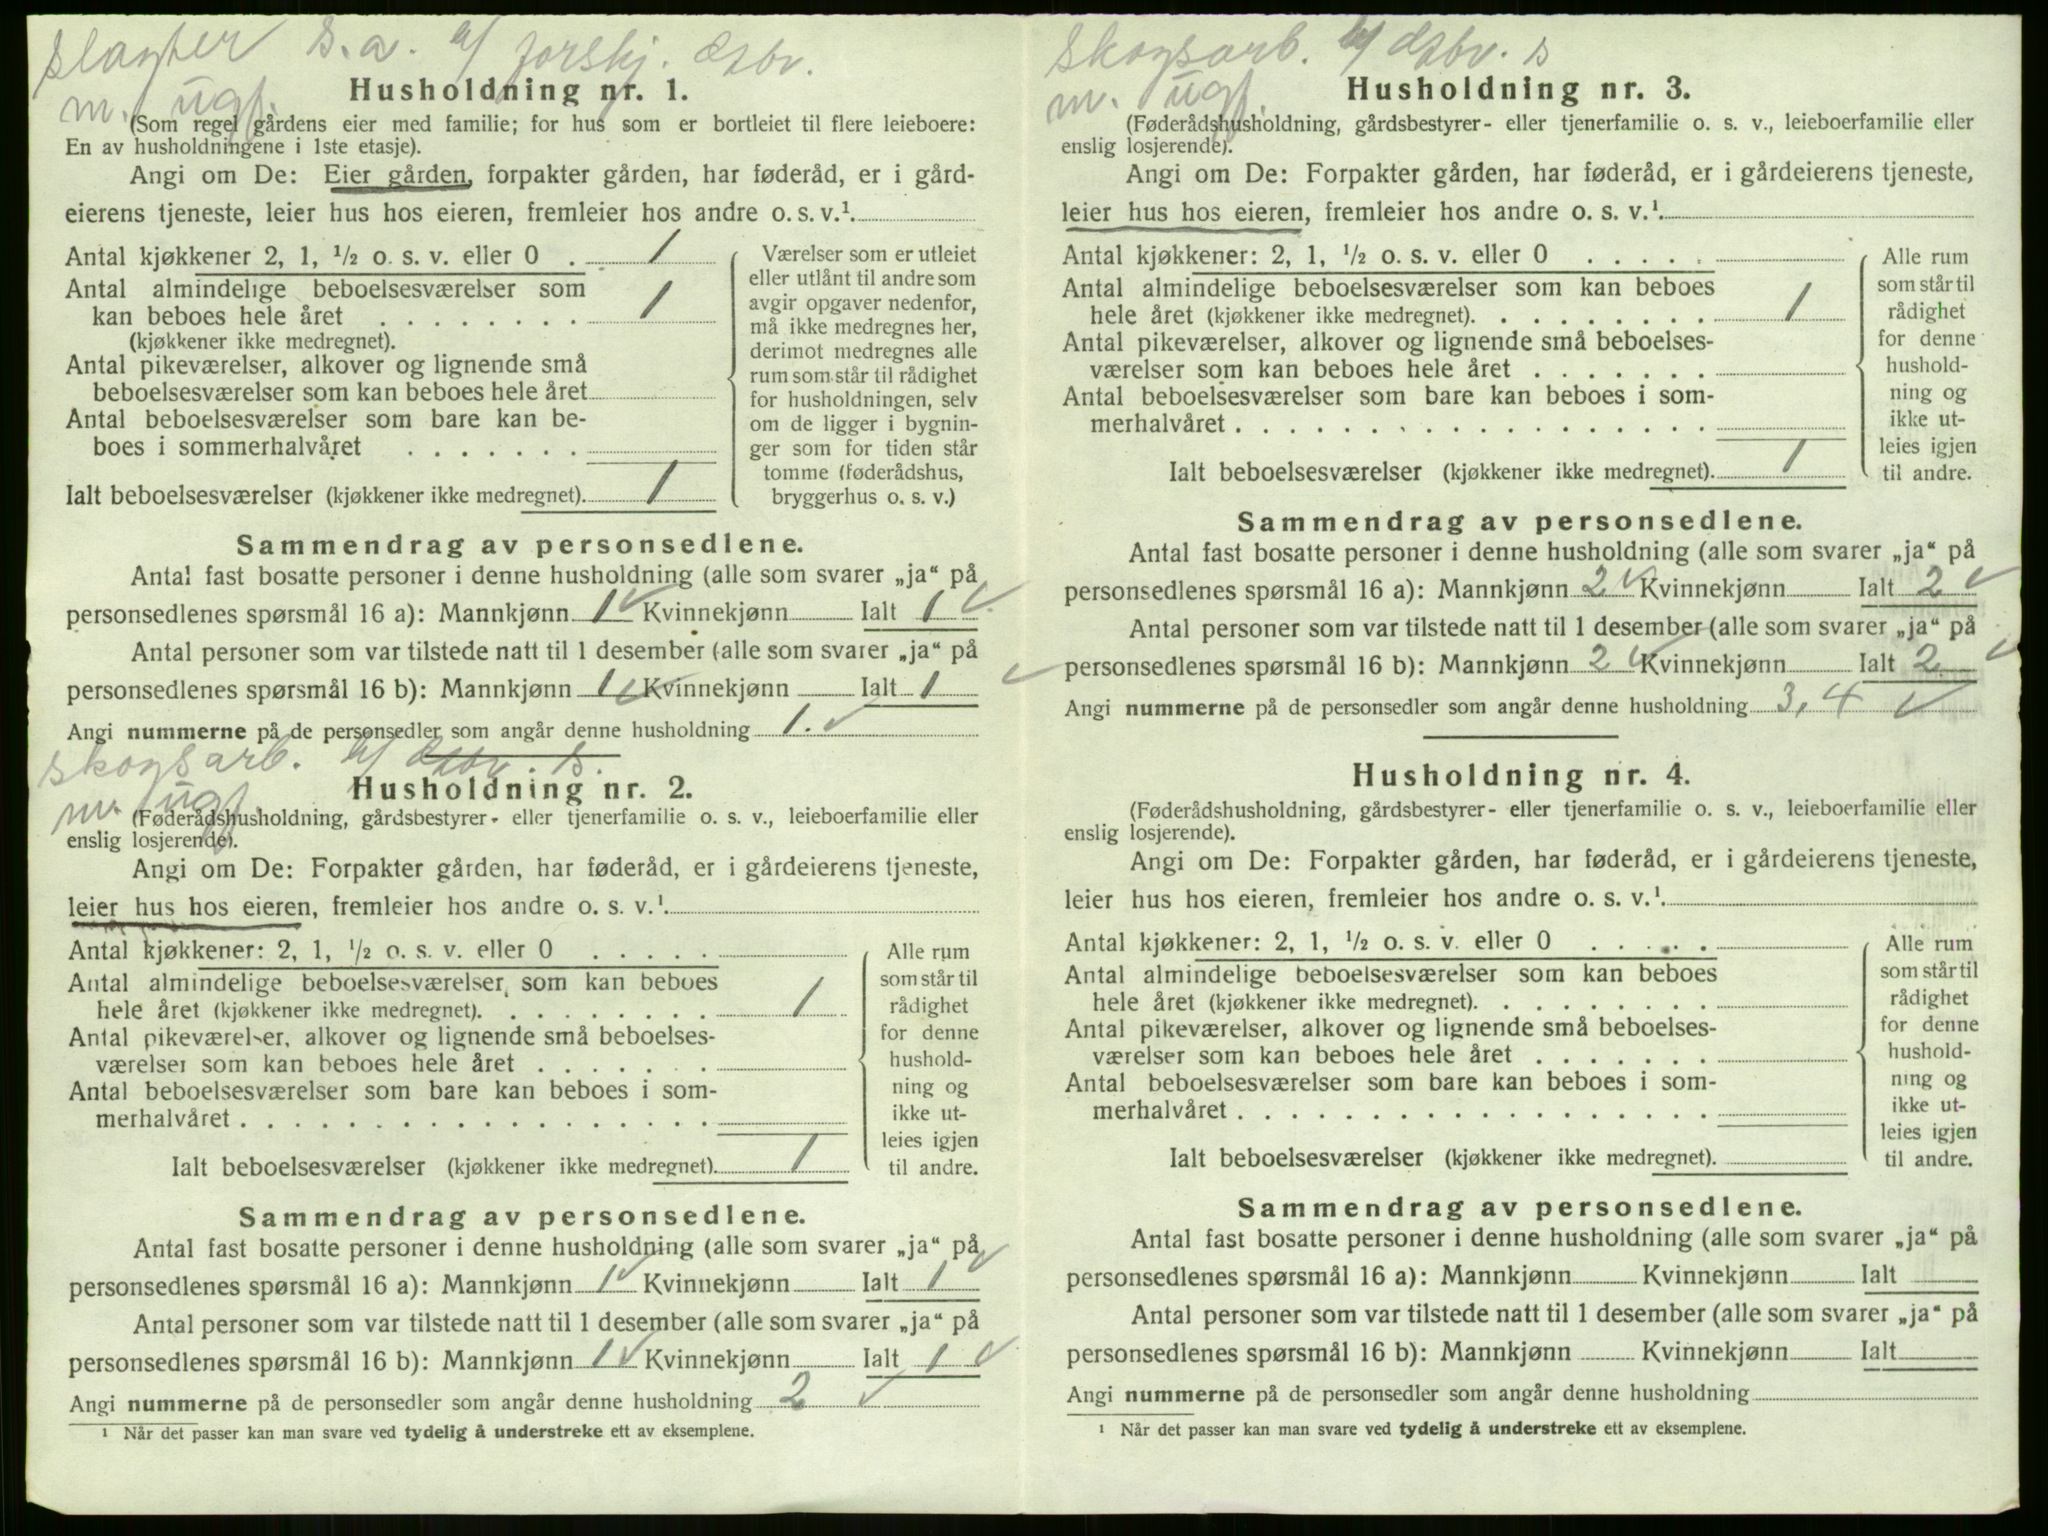 slagter s.a. a/ forskj. Esbv.
m. ugf.
Husholdning nr. 1.
(Som regel gårdens eier med familie; for hus som er bortleiet til flere leieboere:
En av husholdningene i 1ste etasje).
Angi om De: Eier gården, forpakter gården, har føderåd, er i gård-
eierens tjeneste, leier hus hos eieren, fremleier hos andre o. s. v.¹.
Antal kjøkkener 2, 1, ½ o. s. v. eller 0 . 1
Antal almindelige beboelsesværelser som
kan beboes hele året . . . . . . . . 1
(kjøkkener ikke medregnet).
Antal pikeværelser, alkover og lignende små
beboelsesværelser som kan beboes hele året
Antal beboelsesværelser som bare kan be-
boes i sommerhalvåret . . . . . . .
Ialt beboelsesværelser (kjøkkener ikke medregnet). 1
Værelser som er utleiet
eller utlånt til andre som
avgir opgaver nedenfor,
må ikke medregnes her,
derimot medregnes alle
rum som står til rådighet
for husholdningen, selv
om de ligger i bygnin-
ger som for tiden står
tomme (føderådshus,
bryggerhus o. s. v.)
Sammendrag av personsedlene.
Antal fast bosatte personer i denne husholdning (alle som svarer „ja“ på
personsedlenes spørsmål 16 a): Mannkjønn 1 ✓ Kvinnekjønn Ialt 1 ✓
Antal personer som var tilstede natt til 1 desember (alle som svarer „ja“ på
personsedlenes spørsmål 16 b): Mannkjønn 1 ✓ Kvinnekjønn Ialt 1 ✓
Angi nummerne på de personsedler som angår denne husholdning 1. ✓
skogsarb. a/ Esbv. s.
m. ugf.
Husholdning nr. 2.
(Føderådshusholdning, gårdsbestyrer- eller tjenerfamilie o. s. v., leieboerfamilie eller
enslig losjerende).
Angi om De: Forpakter gården, har føderåd, er i gårdeierens tjeneste,
leier hus hos eieren, fremleier hos andre o. s. v.¹.
Antal kjøkkener: 2, 1, ½ o. s. v. eller 0 . . . . .
Antal almindelige beboelsesværelser som kan beboes
hele året (kjøkkener ikke medregnet). . . . . . . . . 1
Antal pikeværelser, alkover og lignende små beboelses-
værelser som kan beboes hele året . . . . . . .
Antal beboelsesværelser som bare kan beboes i som-
merhalvåret . . . . . . . . . . . . . . . . . .
Ialt beboelsesværelser (kjøkkener ikke medregnet). 1
Alle rum
som står til
rådighet
for denne
hushold-
ning og
ikke ut-
leies igjen
til andre.
Sammendrag av personsedlene.
Antal fast bosatte personer i denne husholdning (alle som svarer „ja“ på
personsedlenes spørsmål 16 a): Mannkjønn 1 ✓ Kvinnekjønn Ialt 1 ✓
Antal personer som var tilstede natt til 1 desember (alle som svarer „ja“ på
personsedlenes spørsmål 16 b): Mannkjønn 1 ✓ Kvinnekjønn Ialt 1 ✓
Angi nummerne på de personsedler som angår denne husholdning 2 ✓
¹ Når det passer kan man svare ved tydelig å understreke ett av eksemplene.
skogsarb. a/ Esbv. s
m. ugf.
Husholdning nr. 3.
(Føderådshusholdning, gårdsbestyrer- eller tjenerfamilie o. s. v., leieboerfamilie eller
enslig losjerende).
Angi om De: Forpakter gården, har føderåd, er i gårdeierens tjeneste,
leier hus hos eieren, fremleier hos andre o. s. v.¹.
Antal kjøkkener: 2, 1, ½ o. s. v. eller 0 . . . . .
Antal almindelige beboelsesværelser som kan beboes
hele året (kjøkkener ikke medregnet). . . . . . . . . 1
Antal pikeværelser, alkover og lignende små beboelses-
værelser som kan beboes hele året . . . . . . .
Antal beboelsesværelser som bare kan beboes i som-
merhalvåret . . . . . . . . . . . . . . . . . .
Ialt beboelsesværelser (kjøkkener ikke medregnet). 1
Alle rum
som står til
rådighet
for denne
hushold-
ning og
ikke ut-
leies igjen
til andre.
Sammendrag av personsedlene.
Antal fast bosatte personer i denne husholdning (alle som svarer „ja“ på
personsedlenes spørsmål 16 a): Mannkjønn 2 ✓ Kvinnekjønn Ialt 2 ✓
Antal personer som var tilstede natt til 1 desember (alle som svarer „ja“ på
personsedlenes spørsmål 16 b): Mannkjønn 2 ✓ Kvinnekjønn Ialt 2 ✓
Angi nummerne på de personsedler som angår denne husholdning 3, 4 ✓
Husholdning nr. 4.
(Føderådshusholdning, gårdsbestyrer- eller tjenerfamilie o. s. v., leieboerfamilie eller
enslig losjerende).
Angi om De: Forpakter gården, har føderåd, er i gårdeierens tjeneste,
leier hus hos eieren, fremleier hos andre o. s. v.¹.
Antal kjøkkener: 2, 1, ½ o. s. v. eller 0 . . . . .
Antal almindelige beboelsesværelser som kan beboes
hele året (kjøkkener ikke medregnet). . . . . . . . .
Antal pikeværelser, alkover og lignende små beboelses-
værelser som kan beboes hele året . . . . . . .
Antal beboelsesværelser som bare kan beboes i som-
merhalvåret . . . . . . . . . . . . . . . . . .
Ialt beboelsesværelser (kjøkkener ikke medregnet).
Alle rum
som står til
rådighet
for denne
hushold-
ning og
ikke ut-
leies igjen
til andre.
Sammendrag av personsedlene.
Antal fast bosatte personer i denne husholdning (alle som svarer „ja“ på
personsedlenes spørsmål 16 a): Mannkjønn Kvinnekjønn Ialt
Antal personer som var tilstede natt til 1 desember (alle som svarer „ja“ på
personsedlenes spørsmål 16 b): Mannkjønn Kvinnekjønn Ialt
Angi nummerne på de personsedler som angår denne husholdning
¹ Når det passer kan man svare ved tydelig å understreke ett av eksemplene.